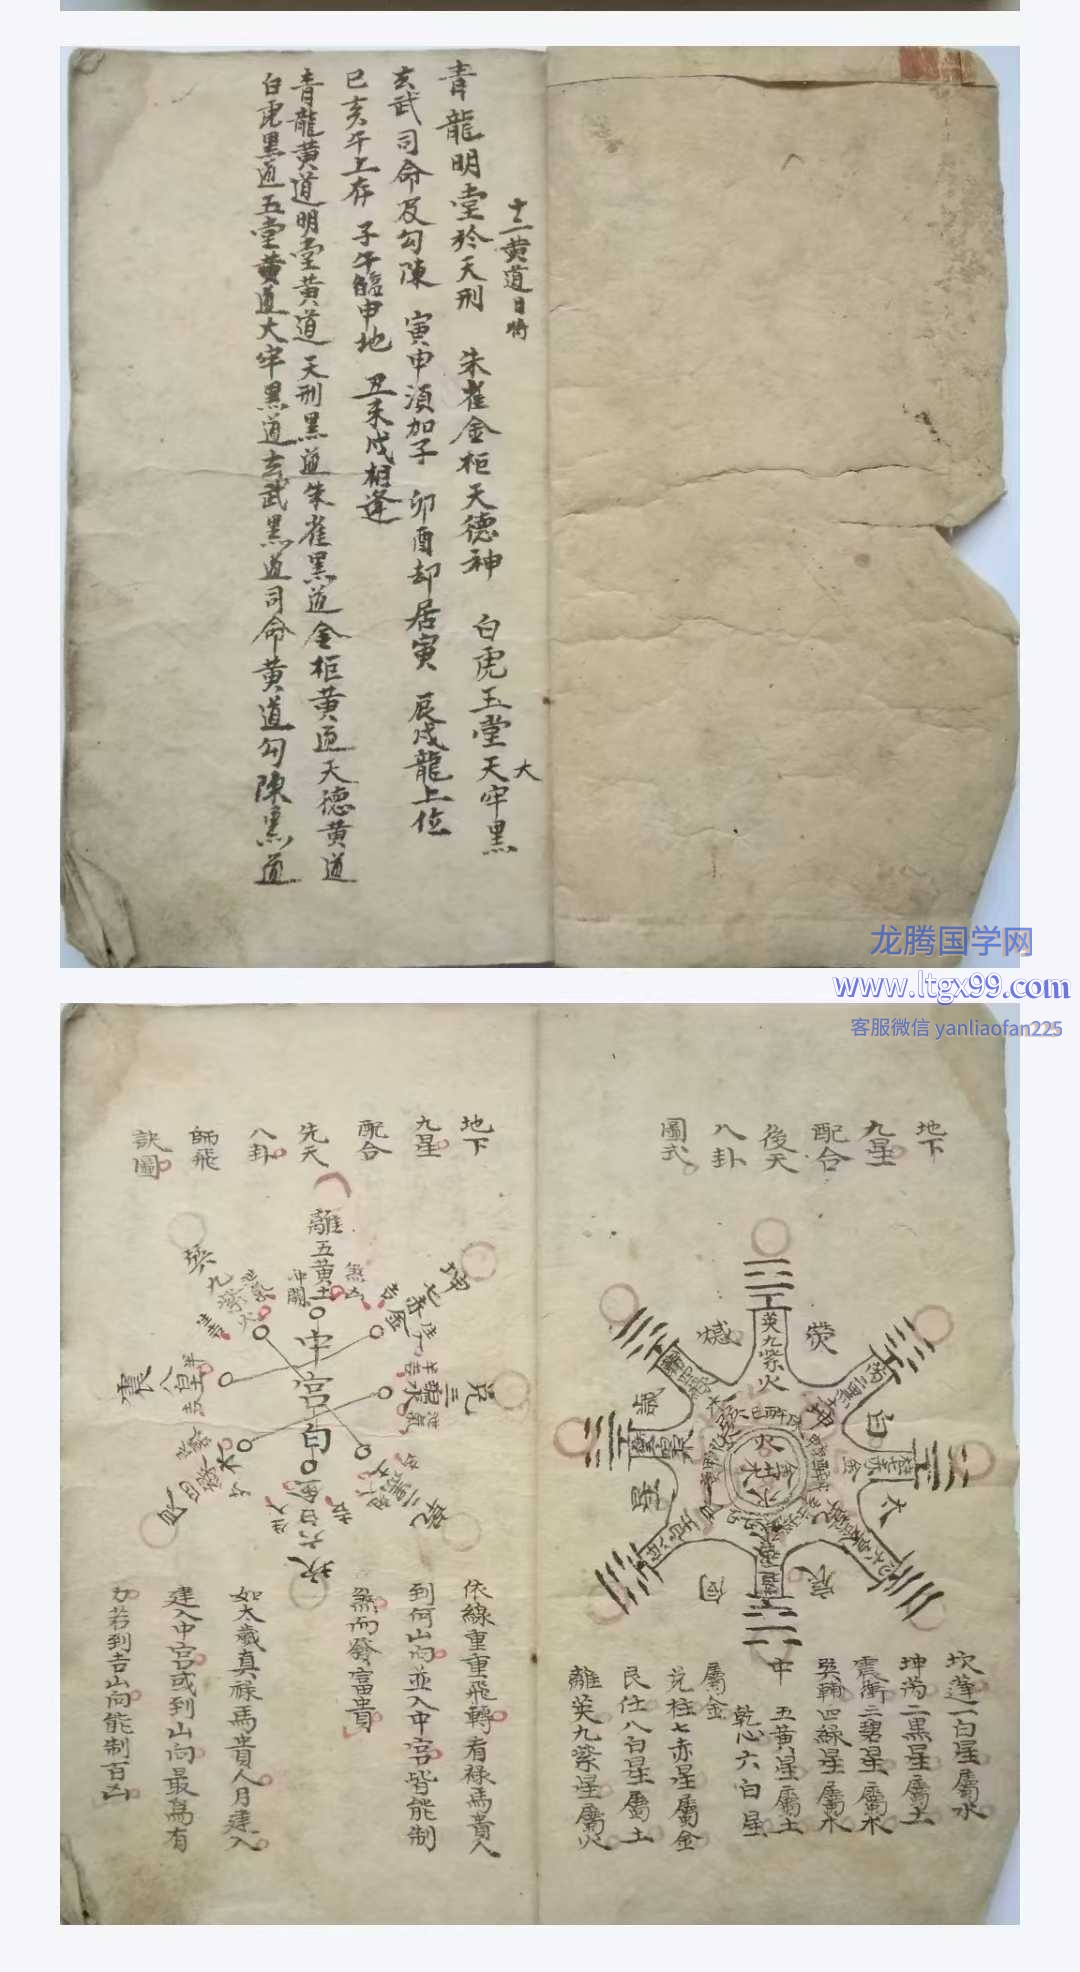 十二黄道日時
青龍明堂於天刑 朱雀金柜天德神 白虎玉堂天牢黑
大
玄武司命及勾陳 寅申須加子 卯酉却居寅 辰戌龍上位
巳亥午上存 子午臨申地 丑未戌相逢
青龍黄道明堂黄道天刑黑道朱雀黑道金柜黄道天德黄道
白虎黑道五堂黄道大牢黑道玄武黑道司命黄道勾陳黑道
龙腾国学网
www.ltgx99.com
客服微信 yanliaofan225
地下
九星
配合
後天
八卦
圖式
英九紫火
坎蓬一白星屬水
坤芮二黑星屬土
震衝三碧星屬木
巽輔四綠星屬木
中 五黄星屬土
乾心六白星
屬金
兑柱七赤星屬金
艮任八白星屬土
離英九紫星屬火
地下
九星
配合
先天
八卦
師飛
訣圖
離五黄土
中宫
白
坎六白金
巽九紫火
震八白土
兑
坤
乾
艮
依線重重飛轉有禄馬貴人
到何山向並入中宫皆能制
煞而發富貴
如太歲真禄馬貴人月建入
建入中宫或到山向最為有
力若到吉山向能制百凶